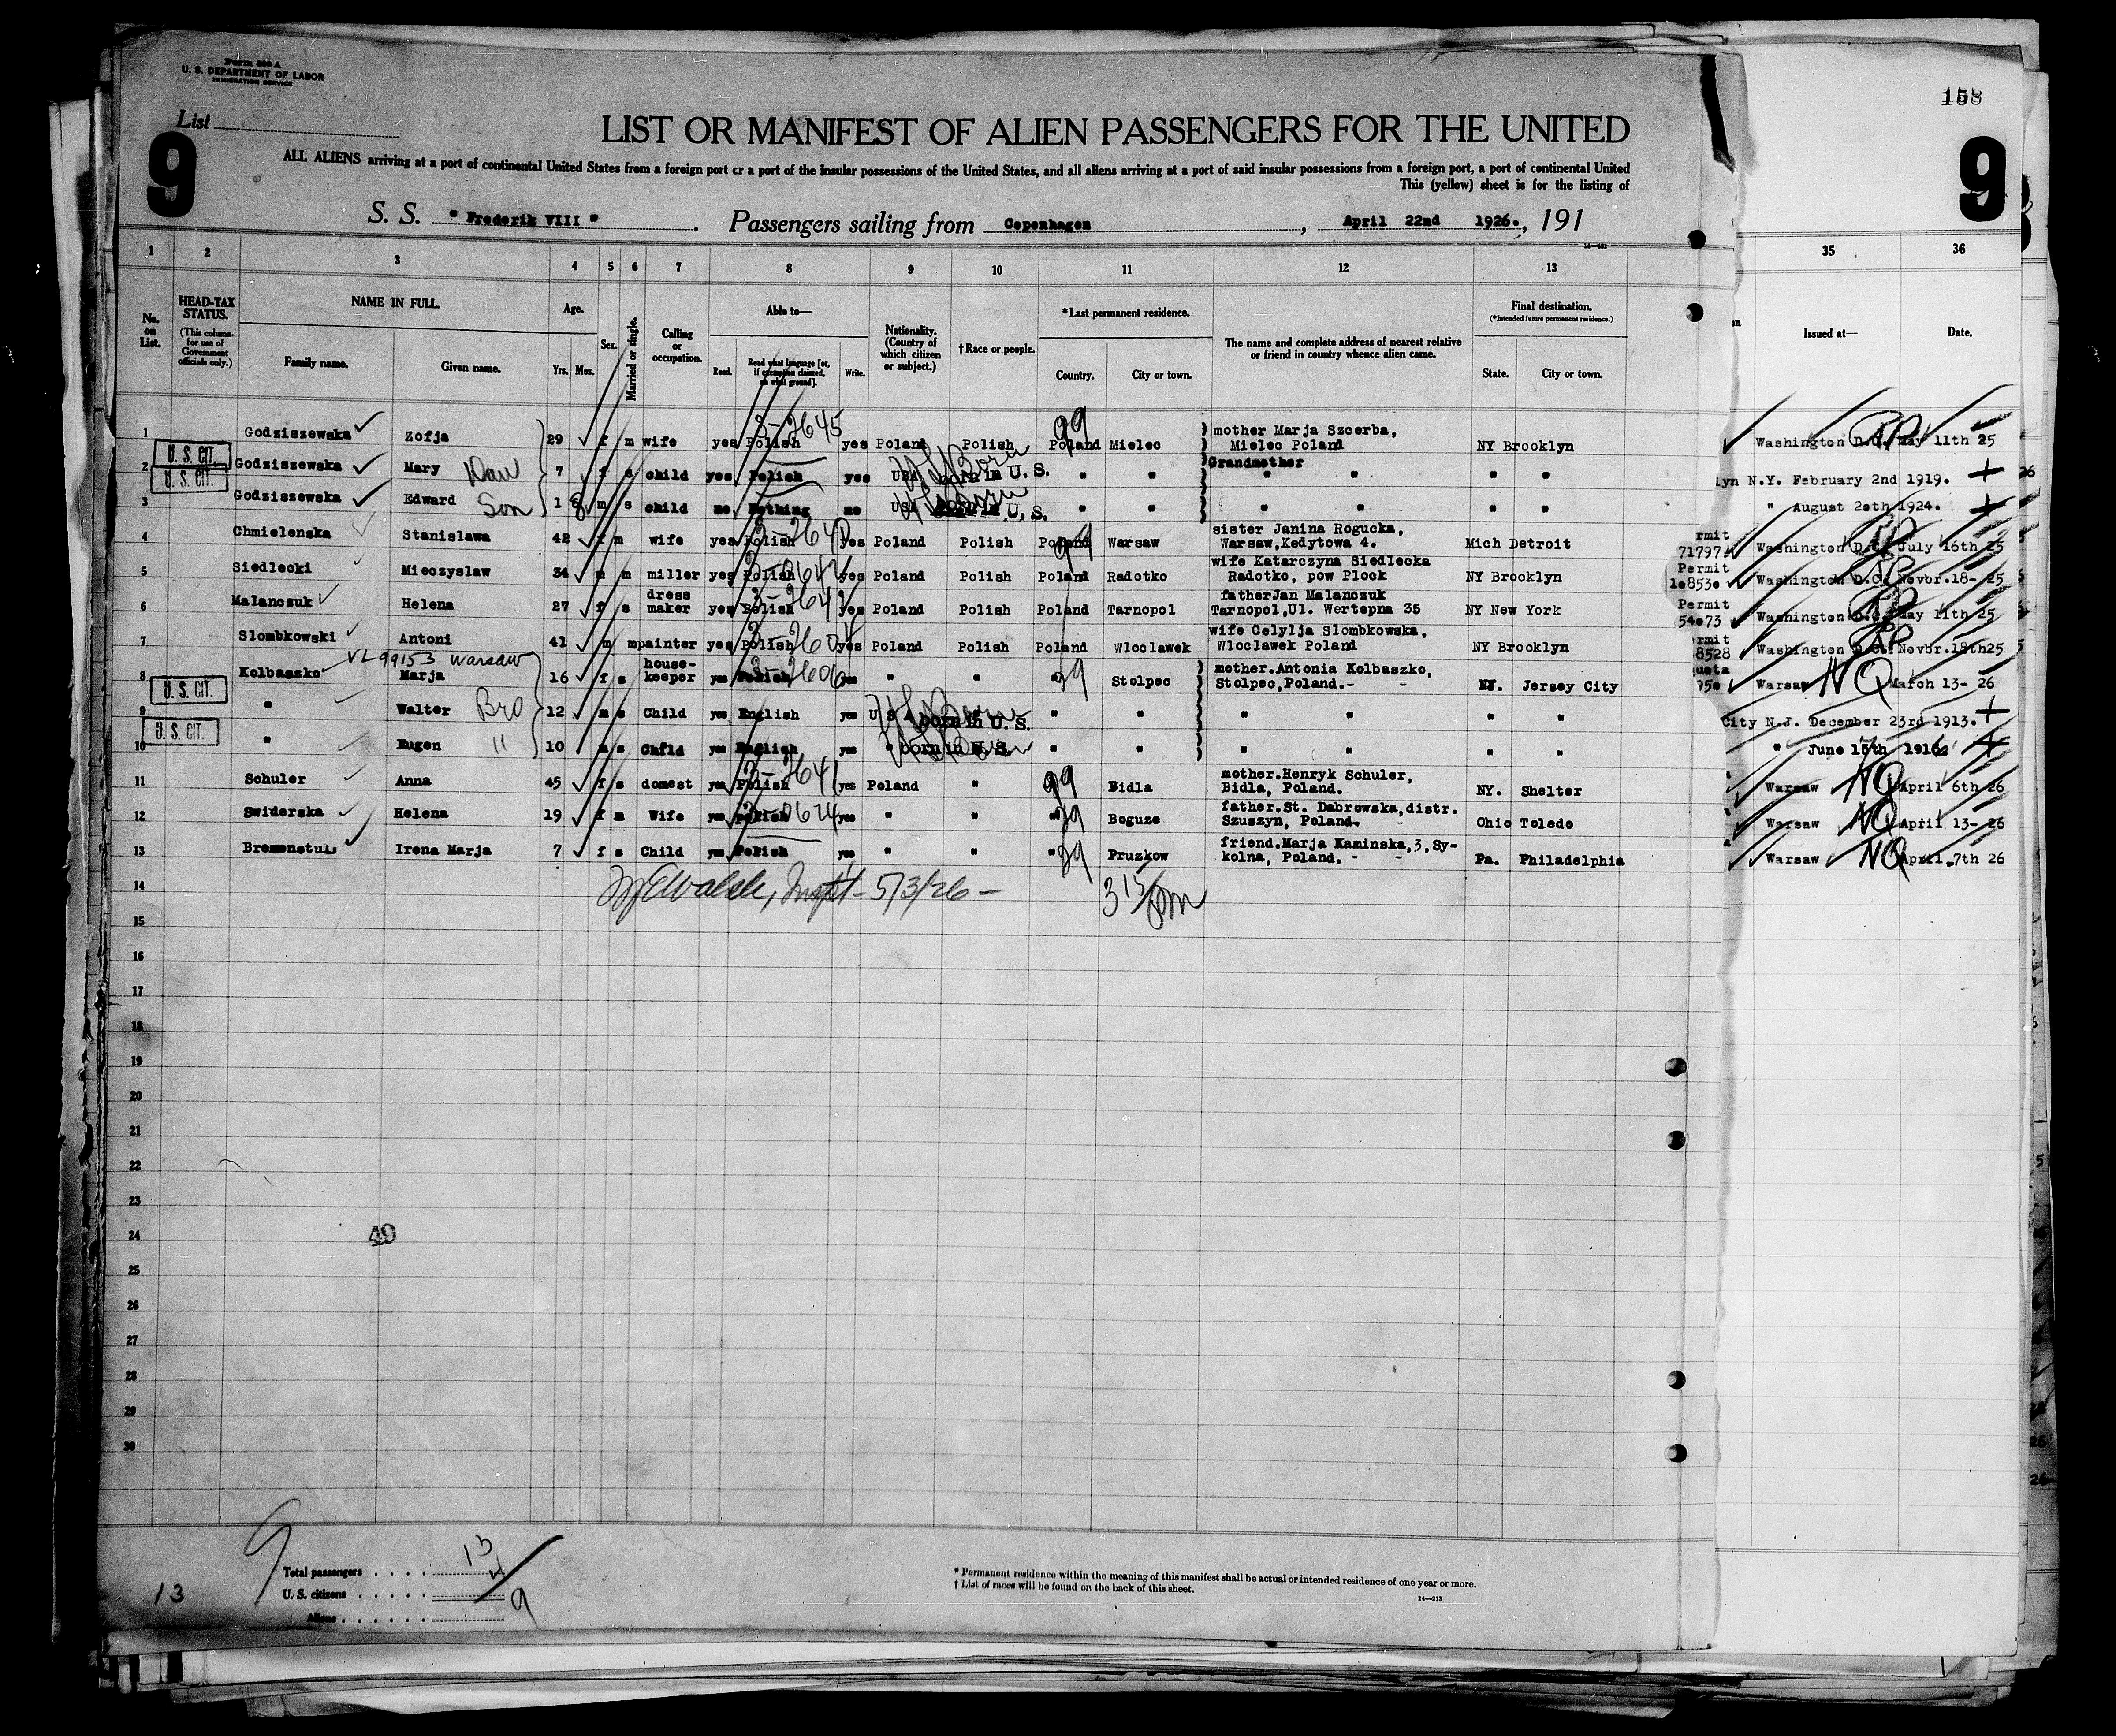 Form 500 A
U. S. DEPARTMENT OF LABOR
IMMIGRATION SERVICE
158
List
9
LIST OR MANIFEST OF ALIEN PASSENGERS FOR THE UNITED
9
ALL ALIENS arriving at a port of continental United States from a foreign port or a port of the insular possessions of the United States, and all aliens arriving at a port of said insular possessions from a foreign port, a port of continental United
This (yellow) sheet is for the listing of
S. S. "Frederik VIII". Passengers sailing from Copenhagen, April 22nd 1926., 191
1 2 3 4 5 6 7 8 9 10 11 12 13 35 36
No. on List.
HEAD-TAX STATUS.
(This column for use of Government officials only.)
NAME IN FULL.
Family name. Given name.
Age.
Yrs. Mos.
Sex.
Married or single.
Calling or occupation.
Able to—
Read. Read what language [or, if exemption claimed, on what ground]. Write.
Nationality. (Country of which citizen or subject.)
†Race or people.
*Last permanent residence.
Country. City or town.
The name and complete address of nearest relative or friend in country whence alien came.
Final destination.
(*Intended future permanent residence.)
State. City or town.
Issued at— Date.
1 Godziszewska Zofja 29 f m wife yes Polish 3-2645 yes Poland Polish Poland 99 Mielec mother Marja Szcerba, Mielec Poland NY Brooklyn Washington D.C. May 11th 25
U. S. CIT.
2 Godziszewska Mary Dau 7 f s child yes Polish yes USA born in U. S. " " Grandmother " " " " lyn N.Y. February 2nd 1919.
U. S. CIT.
3 Godziszewska Edward Son 1 8 m s child no Nothing no USA born in U. S. " " " " " " " August 20th 1924.
4 Chmielenska Stanislawa 42 f m wife yes Polish yes Poland Polish Poland Warsaw sister Janina Rogucka, Warsaw,Kedytowa 4. Mich Detroit rmit 71797 Washington D.C. July 16th 25
5 Siedlecki Mieczyslaw 34 m m miller yes Polish yes Poland Polish Poland Radotko wife Katarczyna Siedlecka Radotko, pow Plock NY Brooklyn Permit 10530 Washington D.C. Novbr.18- 25
6 Malanczuk Helena 27 f s dress maker yes Polish yes Poland Polish Poland Tarnopol fatherJan Malanczuk Tarnopol,Ul. Wertepna 35 NY New York Permit 54073 Washington D.C. May 11th 25
7 Slombkowski Antoni 41 m m painter yes Polish yes Poland Polish Poland Wloclawek wife Celylja Slombkowska, Wloclawek Poland NY Brooklyn rmit 8528 Washington D.C. Novbr.18th25
VL 99153 Warsaw
8 Kolbaszko Marja 16 f s house-keeper yes Polish 3-2606 yes " " " 99 Stolpec mother.Antonia Kolbaszko, Stolpec,Poland.- - NY. Jersey City Warsaw NQ March 13- 26
U. S. CIT.
9 " Walter Bro 12 m s Child yes English yes U S A born in U. S. " " " " " " City N.J. December 23rd 1913.
U. S. CIT.
10 " Eugen " 10 m s Child yes English yes " born in U. S. " " " " " " " June 15th 1916
11 Schuler Anna 45 f s domest yes Polish 3-2641 yes Poland " 99 Bidla mother.Henryk Schuler, Bidla, Poland. NY. Shelter Warsaw NQ April 6th 26
12 Swiderska Helena 19 f m Wife yes Polish yes " " " 99 Boguze father.St. Dabrowska,distr. Szuszyn, Poland. - Ohio Toledo Warsaw NQ April 13- 26
13 Irena Marja 7 f s Child yes Polish yes " " " 99 Pruzkow friend.Marja Kaminska,3,Sy-kolna, Poland. - - Pa. Philadelphia Warsaw NQ April 7th 26
14 Walsh, Inspt - 5/3/26 - 3 15/pm
15
16
17
18
19
20
21
22
23
24 49
25
26
27
28
29
30
9
Total passengers . . . . 13
U. S. citizens . . . . .
Aliens . . . . . . 9
13
* Permanent residence within the meaning of this manifest shall be actual or intended residence of one year or more.
† List of races will be found on the back of this sheet.
14—213